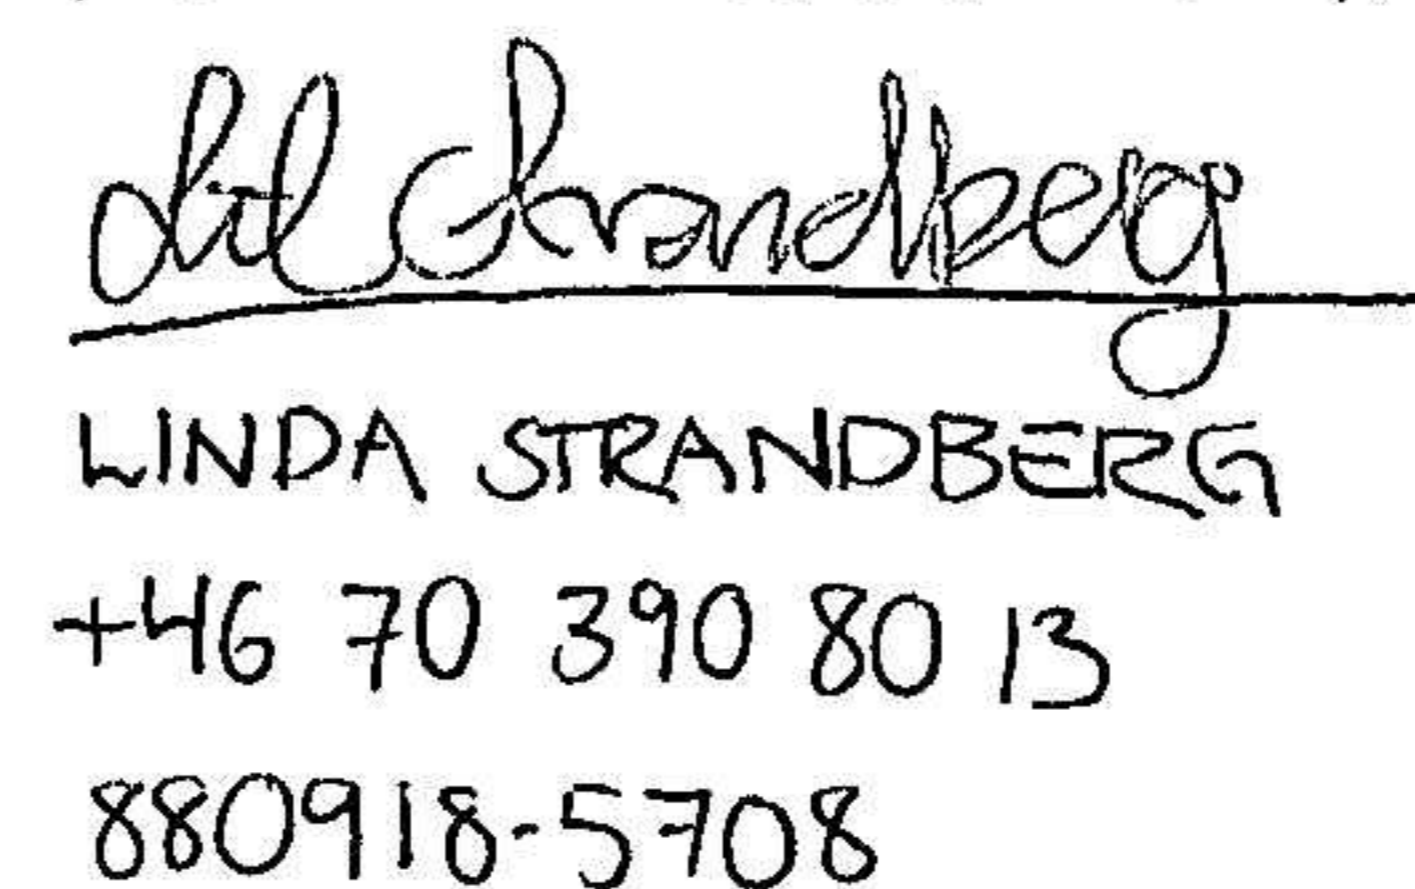 Strandberg
LINDA STRANDBERG
+46 70 390 80 13
880918-5708